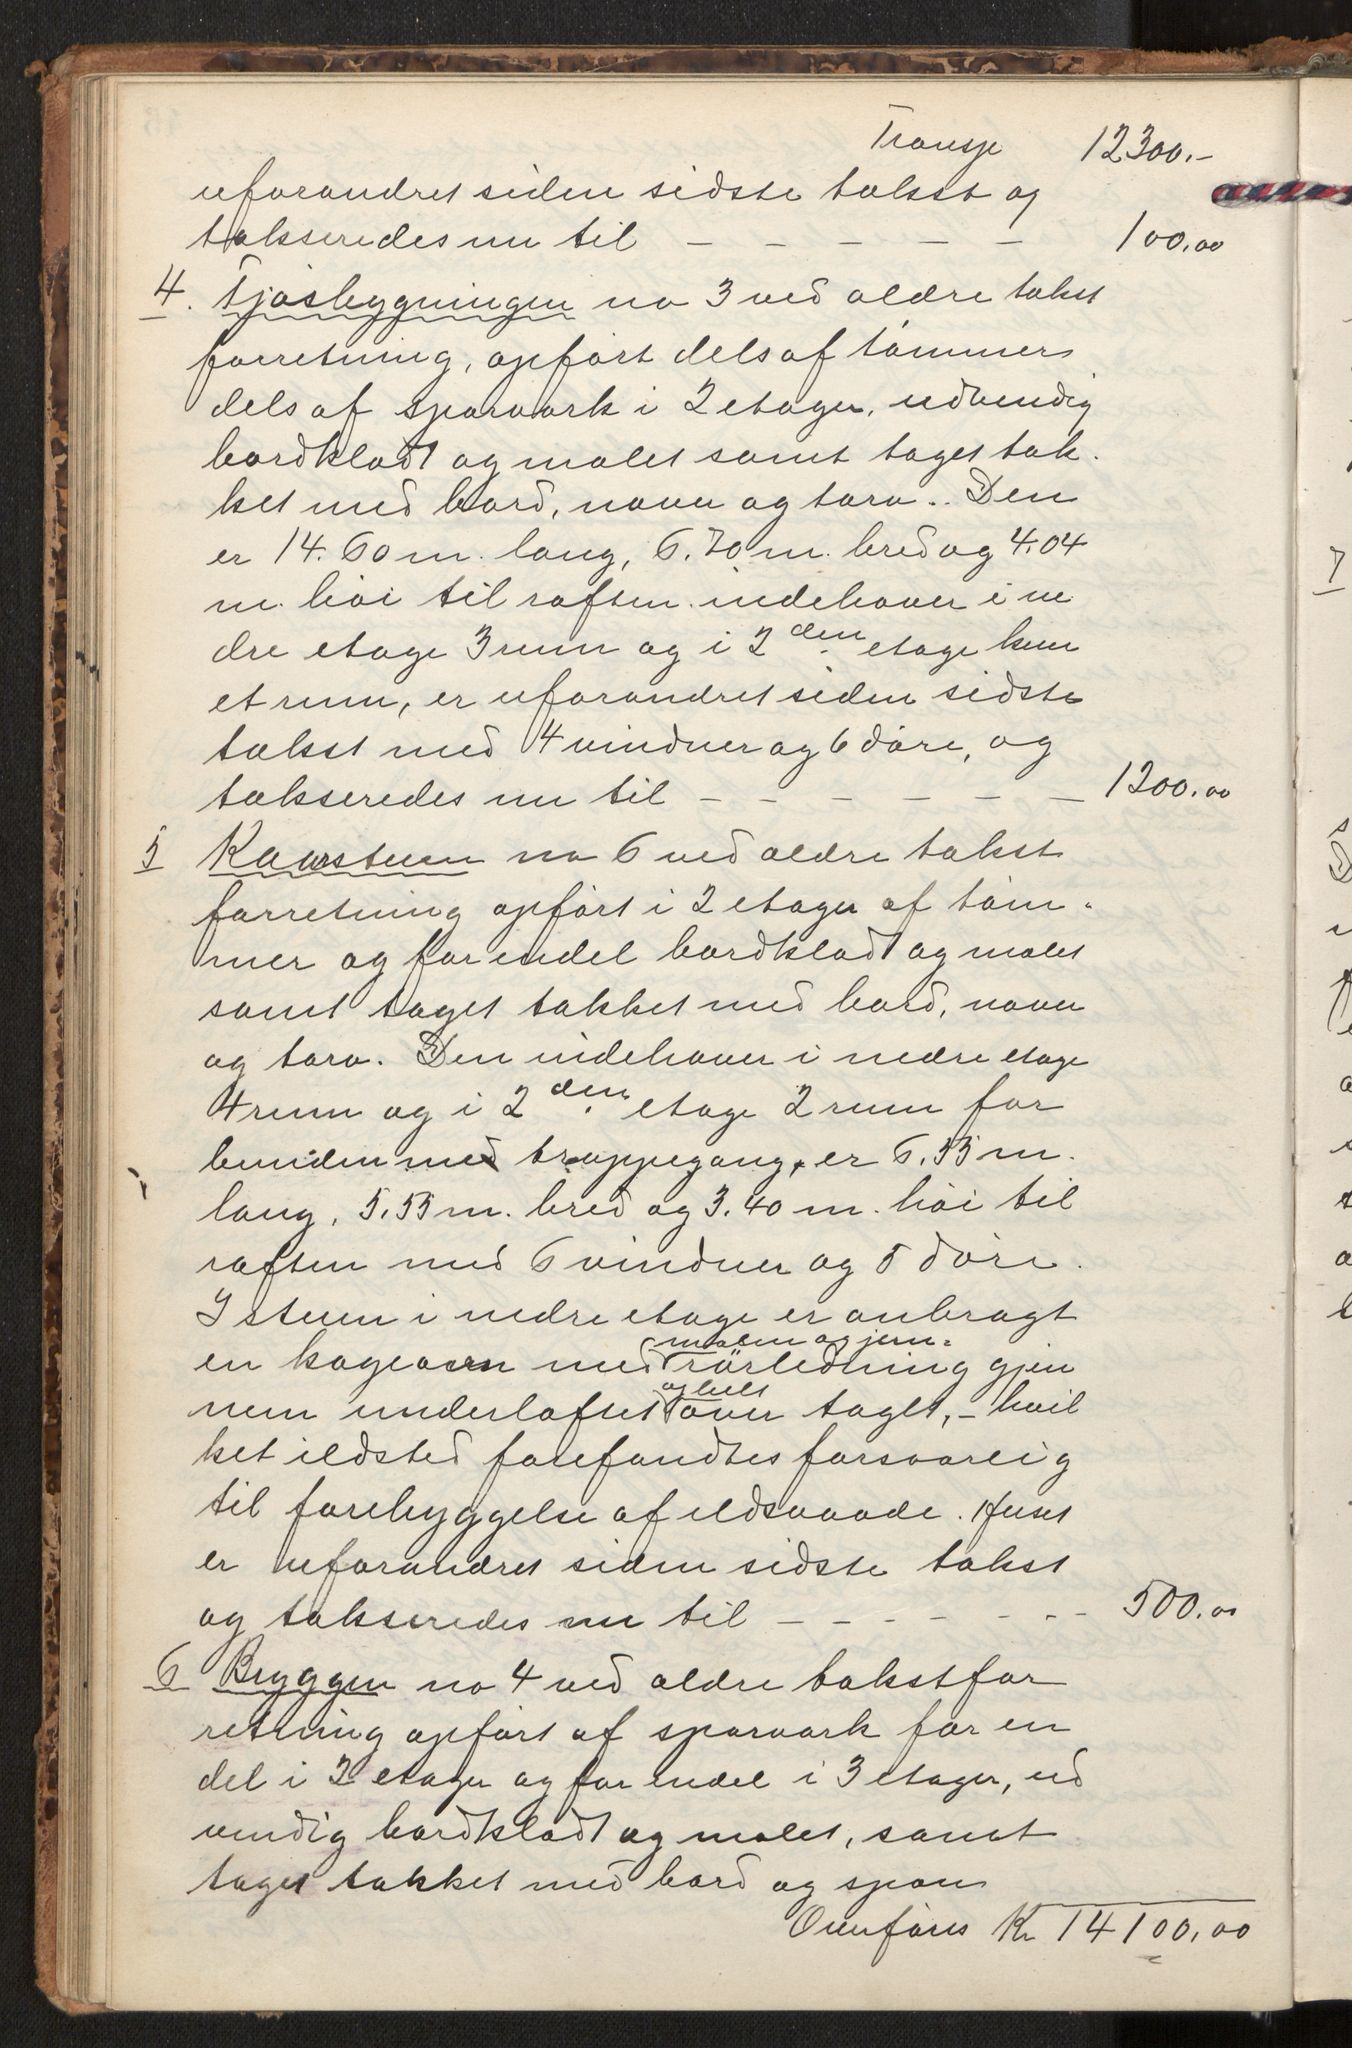 Transp 12300.-
uforandret siden sidste takst og
takseredes nu til – – – – – 100.00
4. Fjøsbygningen no 3 ved ældre takst
forretning, opført dels af tømmer
dels af sparværk i 2 etager, udvendig
bordklædt og malet samt taget tæk-
ket med bord, næver og torv. Den
er 14.60 m. lang, 6.70 m. bred og 4.04
m. høi til raften. indehaver i ne
dre etage 3 rum og i 2den etage kun
et rum, er uforandret siden sidste
takst med 4 vinduer og 6 døre, og
takseredes nu til – – – – – – 1200.00
5 Kaarstuen no 6 ved ældre takst
forretning opført i 2 etager af tøm-
mer og for endel bordklædt og malet
samt taget tækket med bord, næver
og torv. Den indehaver i nedre etage
4 rum og i 2den etage 2 rum for
bunden med trappegang, er 6.55 m.
lang, 5.55 m. bred og 3.40 m. høi til
raften med 6 vinduer og 5 døre.
I stuen i nedre etage er anbragt
en kogeovn med rørledning gjen
nem underloftet og helt over taget, – hvil
ket ildsted forefandtes forsvarlig
til forebyggelse af ildsvaade. Huset
er uforandret siden sidste takst
og takseredes nu til – – – – – – – 500.00
6 Bryggen no 4 ved ældre takstfor
retning opført af sparværk for en
del i 2 etager og for endel i 3 etager, ud
vendig bordklædt og malet, samt
taget tækket med bord og spon
Overføres Kr 14100,00